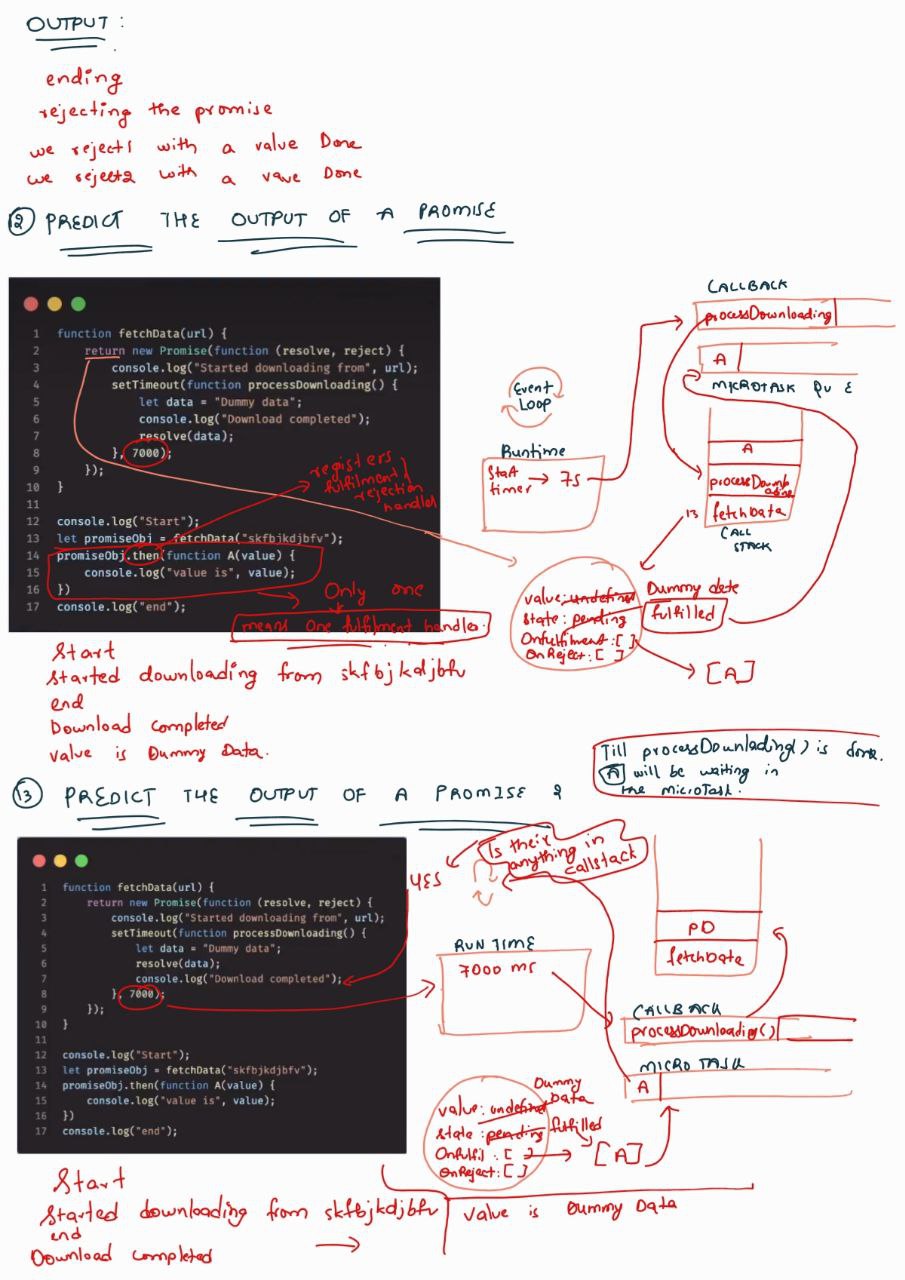 OUTPUT :
ending
rejecting the promise
we reject1 with a value Done
we reject2 with a vave Done
12 PREDICT THE OUTPUT OF A PROMISE
1 function fetchData(url) {
2 return new Promise(function (resolve, reject) {
3 console.log("Started downloading from", url);
4 setTimeout(function processDownloading() {
5 let data = "Dummy data";
6 console.log("Download completed");
7 resolve(data);
8 }, 7000);
9 });
10 }
11
12 console.log("Start");
13 let promiseObj = fetchData("skfbjkdjbfv");
14 promiseObj.then(function A(value) {
15 console.log("value is", value);
16 })
17 console.log("end");
registers
fulfilment /
rejection
handler
Only one
means One fulfilment handler.
CALLBACK
processDownloading
A
MICROTASK QU E
Event
LOOP
Runtime
Start
timer → 7s
A
fetchData
13
CALL
STACK
value: undefined Dummy date
State: pending fulfilled
Onfulfilment: [ ]
OnReject: [ ]
[A]
Start
Started downloading from skfbjkdjbfv
end
Download completed
value is Dummy Data.
Till processDownloading() is done.
A will be waiting in
the microTask.
13 PREDICT THE OUTPUT OF A PROMISE 2
1 function fetchData(url) {
2 return new Promise(function (resolve, reject) {
3 console.log("Started downloading from", url);
4 setTimeout(function processDownloading() {
5 let data = "Dummy data";
6 resolve(data);
7 console.log("Download completed");
8 }, 7000);
9 });
10 }
11
12 console.log("Start");
13 let promiseObj = fetchData("skfbjkdjbfv");
14 promiseObj.then(function A(value) {
15 console.log("value is", value);
16 })
17 console.log("end");
Is their
anything in
callstack
YES
RUN TIME
7000 ms
PD
fetchDate
CALLBACK
processDownloading()
MICRO TASK
A
Dummy
value: undefined Data
State: pending fulfilled
Onfulfil : [ ] → [A]
OnReject: [ ]
Start
Started downloading from skfbjkdjbfv
end
Download completed →
value is Dummy Data